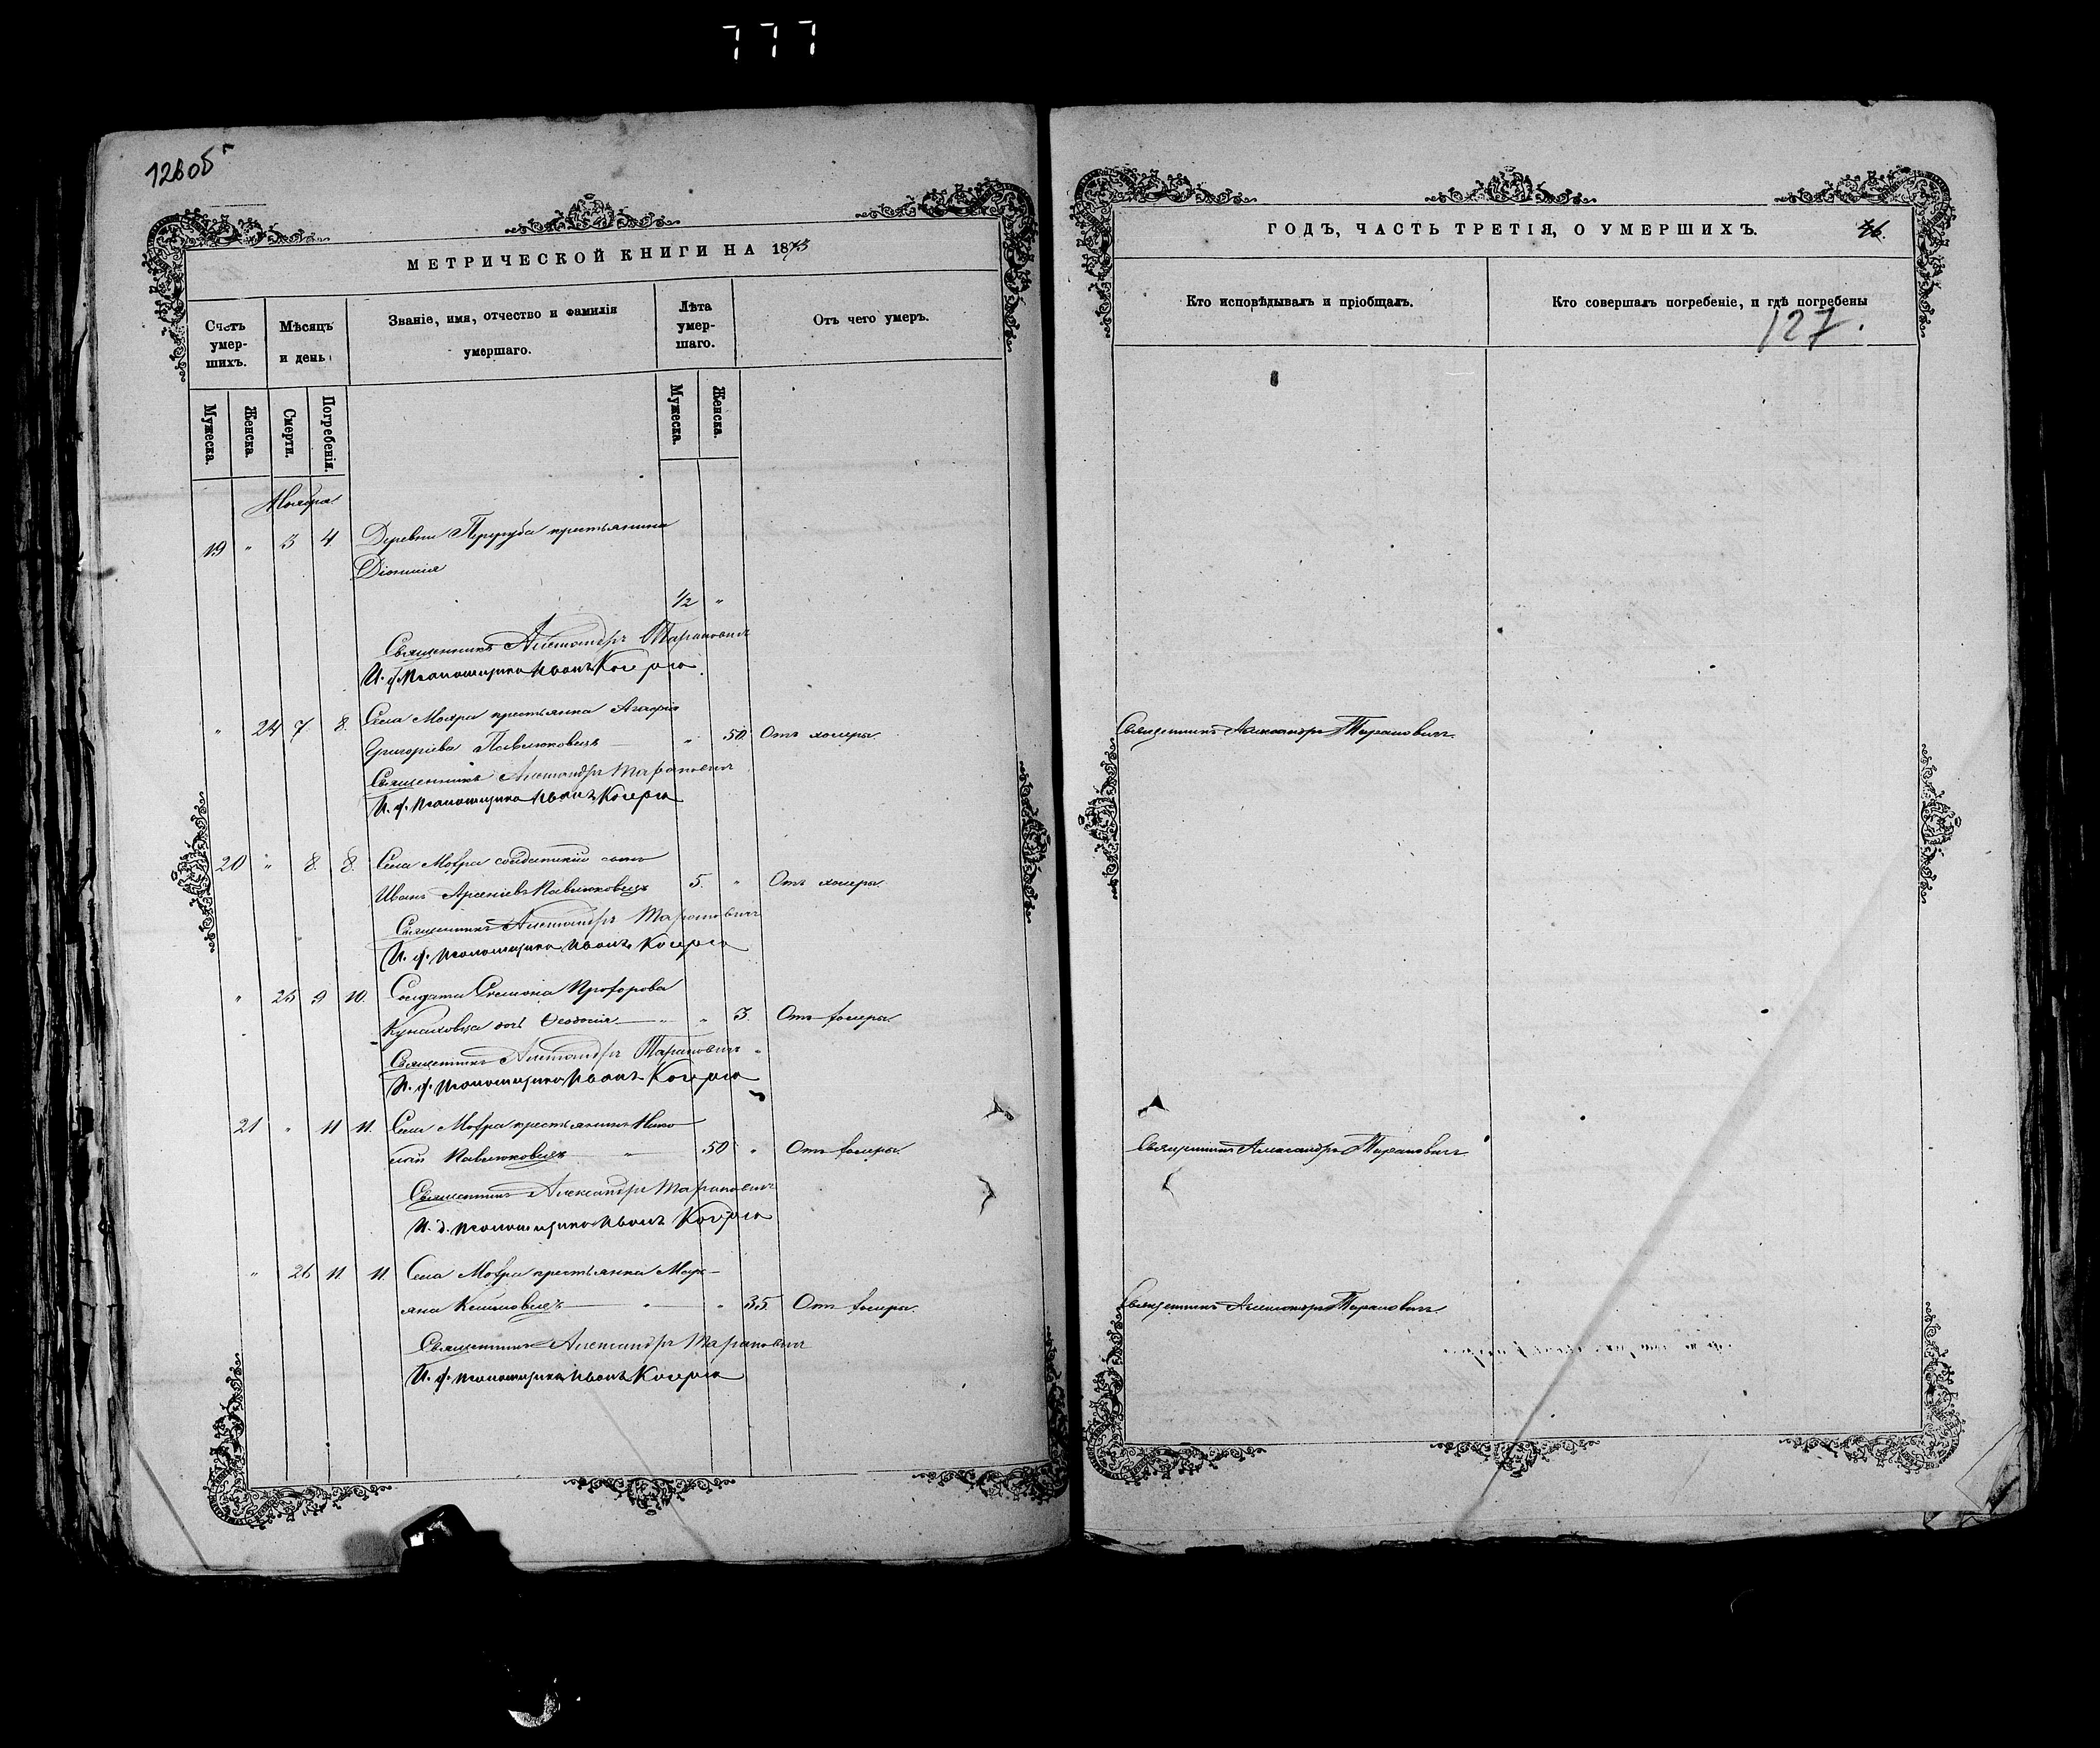 777
126об
МЕТРИЧЕСКОЙ КНИГИ НА 1873
Счетъ умер- шихъ.
Мѣсяцъ и день
Званіе, имя, отчество и фамилія умершаго.
Лѣта умер- шаго.
Отъ чего умеръ.
Мужеска.
Женска.
Смерти.
Погребенія.
Мужеска.
Женска.
Ноября
19 " 3 4. Деревни крестьянина
Діонисія
1/2 "
Священникъ Александръ Тарановичъ
И. ф. Псаломщика Иванъ
" 24 7 8. Села Мохра крестьянка Агафія
Григоріева Павлюковецъ " 50 Отъ холеры.
Священникъ Александръ Тарановичъ
И. ф. Псаломщика Иванъ
20 " 8. 8. Села Мохра солдатскій сынъ
Иванъ Арсеніевъ Павлюковецъ 5. " Отъ холеры.
Священникъ Александръ Тарановичъ
И. ф. Псаломщика Иванъ
" 25 9 10. Солдата Симеона Прохорова
дочь Ѳеодосія " " 3. Отъ холеры.
Священникъ Александръ Тарановичъ
И. ф. Псаломщика Иванъ
21 " 11 11. Села Мохра крестьянинъ Нико
лай Павлюковецъ " 50 " Отъ холеры.
Священникъ Александръ Тарановичъ
И. д. Псаломщика Иванъ
" 26 11 11. Села Мохра крестьянка Марь-
яна " " 35. Отъ холеры.
Священникъ Александръ Тарановичъ
И. ф. Псаломщика Иванъ
ГОДЪ, ЧАСТЬ ТРЕТІЯ, О УМЕРШИХЪ.
76.
Кто исповѣдывалъ и пріобщалъ.
Кто совершалъ погребеніе, и гдѣ погребены
127.
Священникъ Александръ Тарановичъ.
Священникъ Александръ Тарановичъ
Священникъ Александръ Тарановичъ